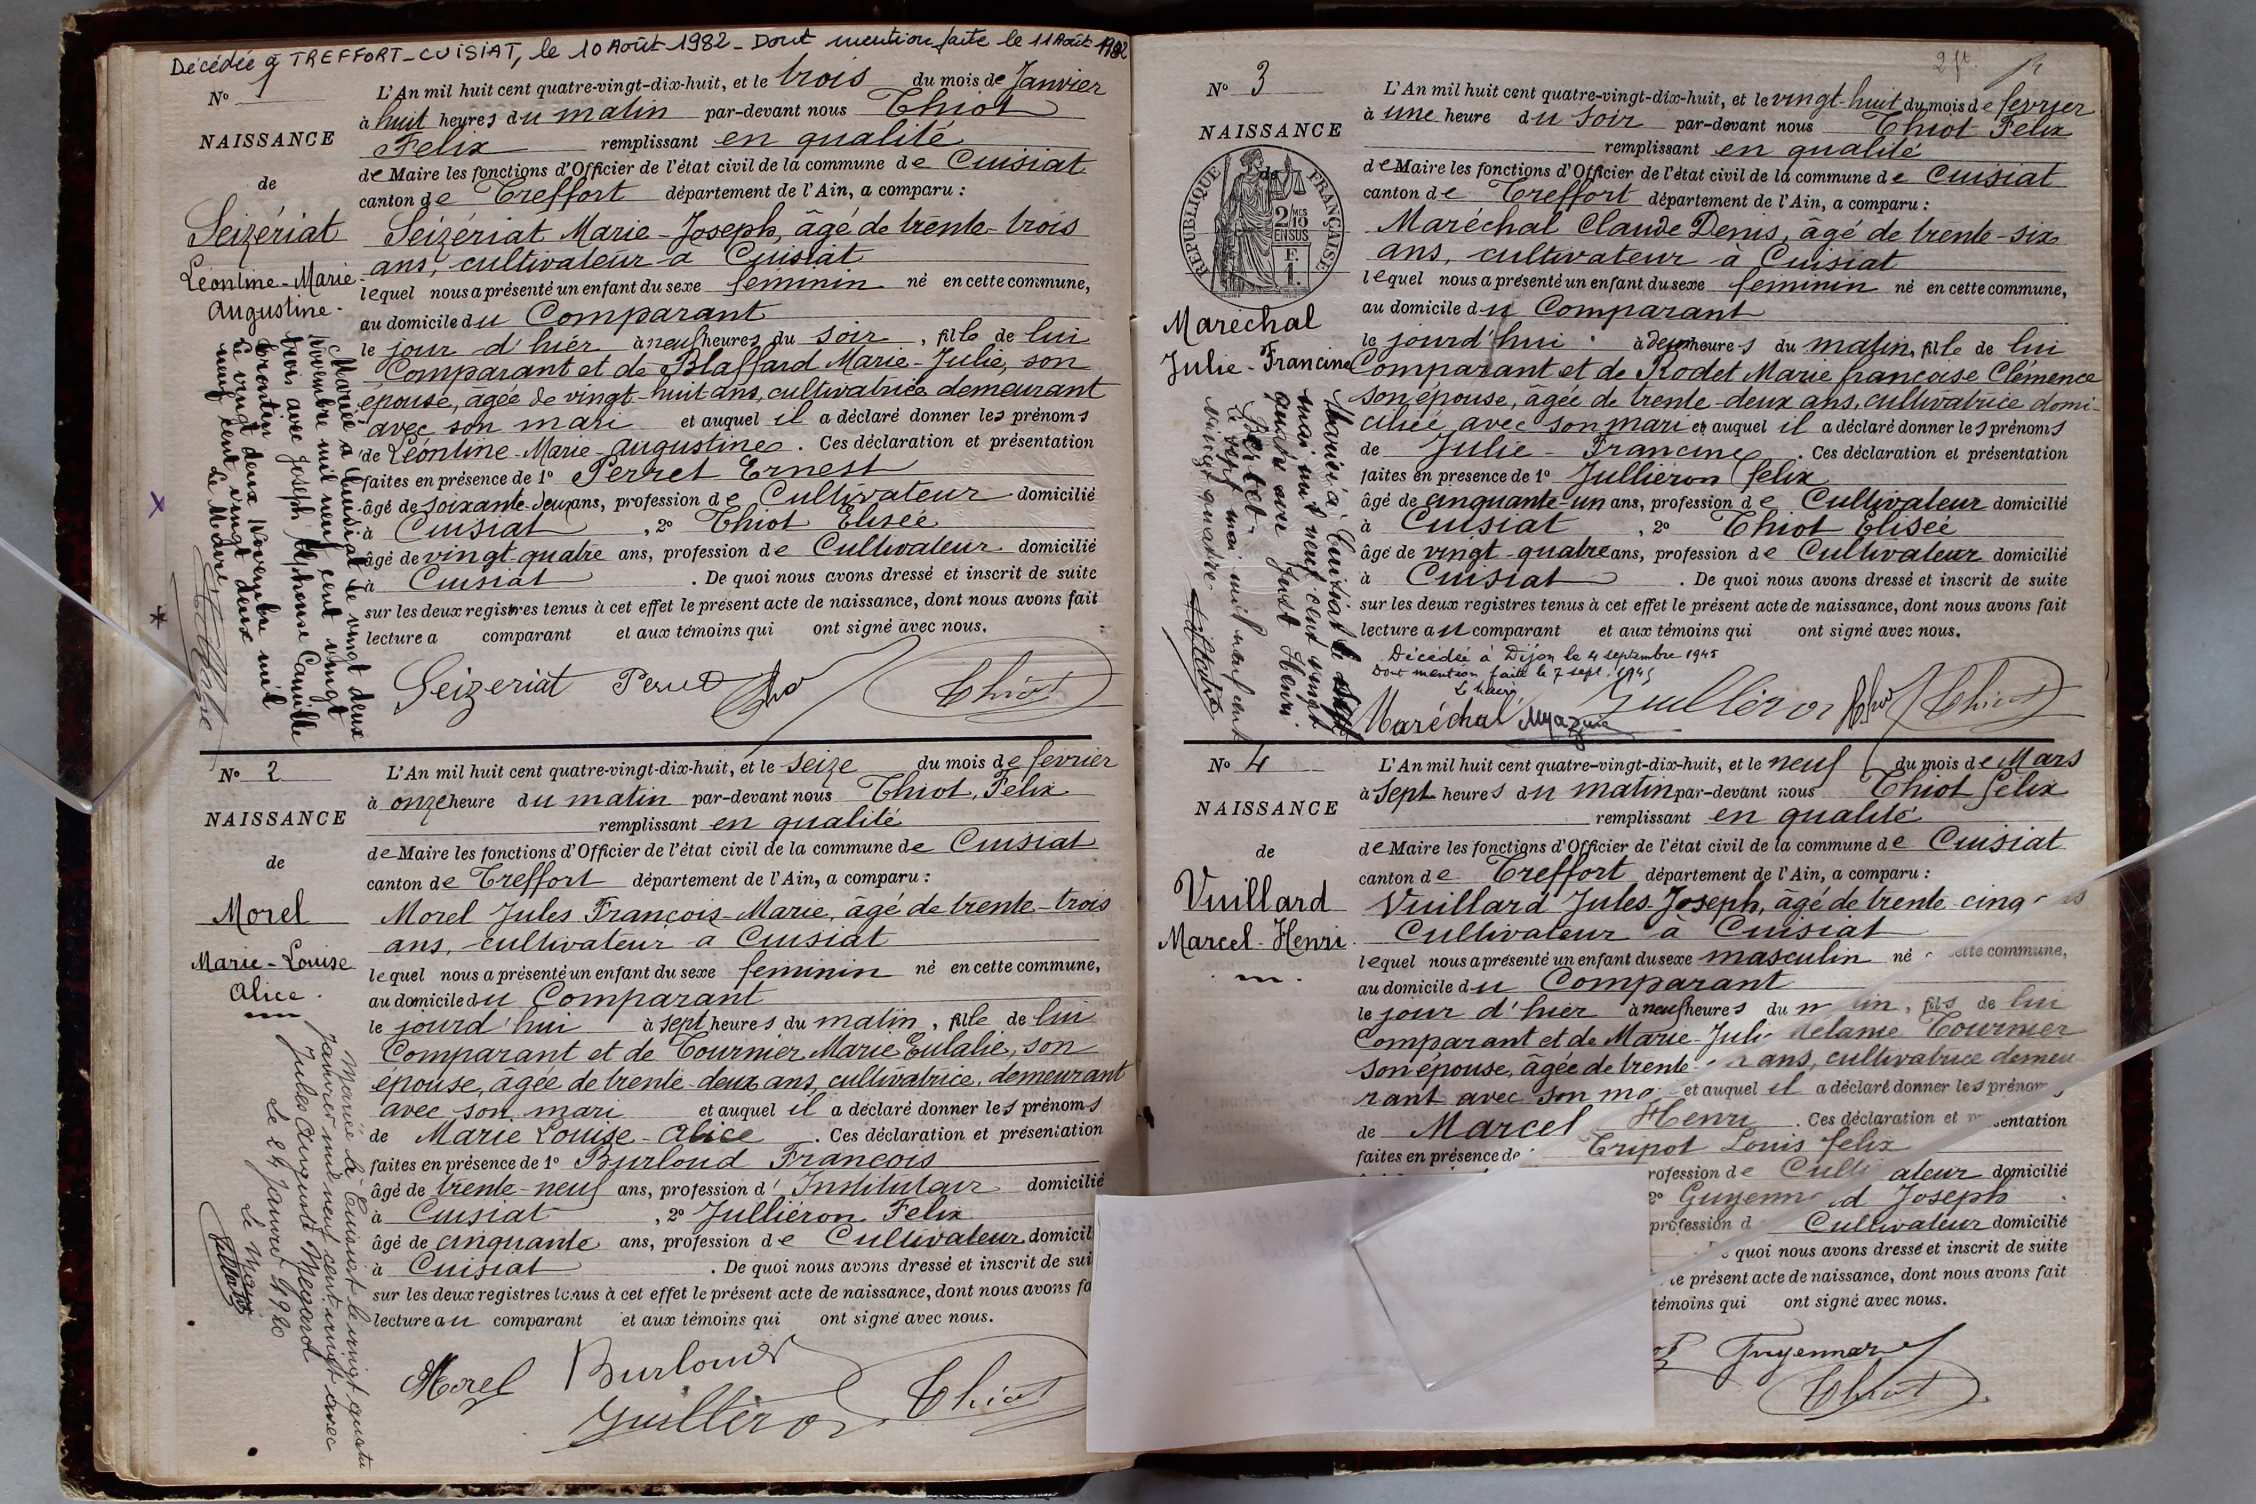 Décédée à TREFFORT-CUISIAT, le 10 Août 1982 - Dont mention faite le 11 Août 1982
N° 1
NAISSANCE
de
Seizériat
Léontine-Marie
Augustine.
L'An mil huit cent quatre-vingt-dix-huit, et le trois du mois de Janvier
à huit heures du matin par-devant nous Thiot
Felix remplissant en qualité
de Maire les fonctions d'Officier de l'état civil de la commune de Cuisiat
canton de Treffort département de l'Ain, a comparu :
Seizériat Marie-Joseph, âgé de trente-trois
ans, cultivateur à Cuisiat
lequel nous a présenté un enfant du sexe feminin né en cette commune,
au domicile du Comparant
le jour d'hier à neuf heures du soir, fille de lui
Comparant et de Blaffard Marie-Julie, son
épouse, âgée de vingt-huit ans, cultivatrice demeurant
avec son mari et auquel il a déclaré donner les prénoms
de Léontine-Marie-Augustine. Ces déclaration et présentation
faites en présence de 1° Perret Ernest
âgé de soixante-deux ans, profession de Cultivateur domicilié
à Cuisiat, 2° Thiot Elisée
âgé de vingt-quatre ans, profession de Cultivateur domicilié
à Cuisiat. De quoi nous avons dressé et inscrit de suite
sur les deux registres tenus à cet effet le présent acte de naissance, dont nous avons fait
lecture a comparant et aux témoins qui ont signé avec nous.
Seizeriat Perret Thiot
Mariée à Cuisiat le vingt deux
Novembre mil neuf cent vingt
trois avec Joseph Alphonse Camille
le vingt deux Novembre mil
neuf cent vingt deux
Le Maire
N° 2
NAISSANCE
de
Morel
Marie-Louise
Alice.
L'An mil huit cent quatre-vingt-dix-huit, et le seize du mois de fevrier
à onze heure du matin par-devant nous Thiot, Felix
remplissant en qualité
de Maire les fonctions d'Officier de l'état civil de la commune de Cuisiat
canton de Treffort département de l'Ain, a comparu :
Morel Jules François-Marie, âgé de trente-trois
ans, cultivateur à Cuisiat
lequel nous a présenté un enfant du sexe feminin né en cette commune,
au domicile du Comparant
le jourd'hui à sept heures du matin, fille de lui
Comparant et de Tournier Marie Eulalie, son
épouse, âgée de trente-deux ans, cultivatrice, demeurant
avec son mari et auquel il a déclaré donner les prénoms
de Marie Louise-Alice. Ces déclaration et présentation
faites en présence de 1° Burloud François
âgé de trente-neuf ans, profession d'Instituteur domicilié
à Cuisiat, 2° Julliéron Felix
âgé de cinquante ans, profession de Cultivateur domicil
à Cuisiat. De quoi nous avons dressé et inscrit de sui
sur les deux registres tenus à cet effet le présent acte de naissance, dont nous avons fa
lecture au comparant et aux témoins qui ont signé avec nous.
Morel Burloud
Juilleron Thiot
Mariée à Cuisiat le vingt quatre
Janvier mil neuf cent vingt avec
Jules Auguste
Le 24 Janvier 1920
Le Maire
N° 3
NAISSANCE
de
RÉPUBLIQUE FRANÇAISE
2/10 MES
EN SUS
F.
1.
Maréchal
Julie-Francine
L'An mil huit cent quatre-vingt-dix-huit, et le vingt-huit du mois de fevrier
à une heure du soir par-devant nous Thiot Felix
remplissant en qualité
de Maire les fonctions d'Officier de l'état civil de la commune de Cuisiat
canton de Treffort département de l'Ain, a comparu :
Maréchal Claude Denis, âgé de trente-six
ans, cultivateur à Cuisiat
lequel nous a présenté un enfant du sexe feminin né en cette commune,
au domicile du Comparant
le jourd'hui à deux heures du matin, fille de lui
Comparant et de Rodet Marie françoise Clémence
son épouse, âgée de trente-deux ans, cultivatrice domi-
ciliée avec son mari et auquel il a déclaré donner les prénoms
de Julie-Francine. Ces déclaration et présentation
faites en presence de 1° Jullieron felix
âgé de cinquante-un ans, profession de Cultivateur domicilié
à Cuisiat, 2° Thiot Elisée
âgé de vingt-quatre ans, profession de Cultivateur domicilié
à Cuisiat. De quoi nous avons dressé et inscrit de suite
sur les deux registres tenus à cet effet le présent acte de naissance, dont nous avons fait
lecture au comparant et aux témoins qui ont signé avec nous.
Décédée à Dijon le 4 septembre 1945
Dont mention faite le 7 sept. 1945
Le Maire
Maréchal Juilléron Thiot
Mariée à Cuisiat le sept
mai mil neuf cent vingt
quatre avec Just Henri
le sept mai mil neuf cent
vingt quatre
N° 4
NAISSANCE
de
Vuillard
Marcel-Henri
L'An mil huit cent quatre-vingt-dix-huit, et le neuf du mois de Mars
à sept heures du matin par-devant nous Thiot Felix
remplissant en qualité
de Maire les fonctions d'Officier de l'état civil de la commune de Cuisiat
canton de Treffort département de l'Ain, a comparu :
Vuillard Jules Joseph, âgé de trente-cinq
Cultivateur à Cuisiat
lequel nous a présenté un enfant du sexe masculin né cette commune,
au domicile du Comparant
le jour d'hier à neuf heures du matin, fils de lui
Comparant et de Marie-Julie Mélanie Tournier
son épouse, âgée de trente ans, cultivatrice demeu
rant avec son et auquel il a déclaré donner les prénom
de Marcel Henri. Ces déclaration et présentation
faites en présence de Tripot Louis felix
profession de Cultivateur domicilié
2° Guyennard Joseph
profession d Cultivateur domicilié
De quoi nous avons dressé et inscrit de suite
le présent acte de naissance, dont nous avons fait
témoins qui ont signé avec nous.
Guyennard
Thiot